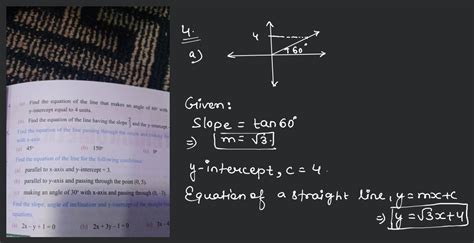 4. (a) Find the equation of the line that makes an angle of 60° with
y-intercept equal to 4 units.
(b) Find the equation of the line having the slope and the y-intercept
Find the equation of the line passing through the
(a) 45° (b) 150°
Find the equation of the line for the following conditions:
(a) parallel to x-axis and y-intercept = 3.
(b) parallel to y-axis and passing through the point (0, 5).
(c) making an angle of 30° with x-axis and passing through (0, -3).
Find the slope, angle of inclination and y-intercept of the straight
equations.
(a) 2x - y + 1 = 0 (b) 2x + 3y - 1 = 0 (c) 3x - 4
4.
a)
4
60°
Given:
Slope = tan 60°
⇒ m = √3
y-intercept, c = 4.
Equation of a straight line, y = mx + c
⇒ y = √3x + 4